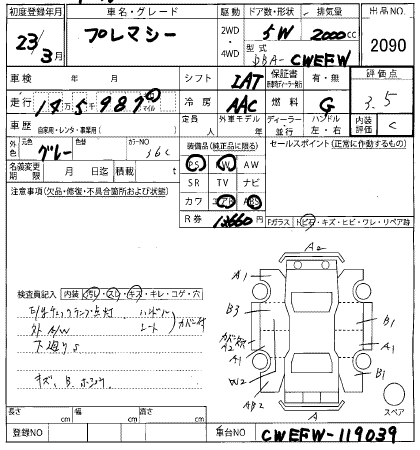 初度登録年月 車名・グレード 駆動 ドア数・形状 排気量 出品NO
23年3月 プレマシー 2WD・4WD 5W 2000cc 2090
型式 DBA-CWEFW
車検 年 月 シフト IAT 保証書 有・無 評価点
走行 1万5千987 マイル 冷房 AAC 燃料 G 3.5
車歴 自家用・レンタ・事業用( ) 定員 人 外車モデル 年 ディーラー 並行 ハンドル 左・右 内装評価 C
外色 元色 グレー 色替 カラーNO 36C 装備品(純正品に限る) セールスポイント(正常に作動するもの)
名義変更期限 月 日迄 積載 t PS PW AW
注意事項(欠品・修復・不具合箇所および状態) SR TV ナビ
カワ エアB ABS
R券 12660円 Fガラス トビ石・キズ・ヒビ・ワレ・リペア跡
A2
A1
B3
B1
A2
A1
A1
W2
B1
AB2
A
スペア
検査員記入 内装(汚レ・スレ・キズ・キレ・コゲ・穴
エンジンチェックランプ点灯
外 A/W
下廻りS
キズ、B
長さ cm 幅 cm 高さ cm
登録NO 車台NO CWEFW-119039